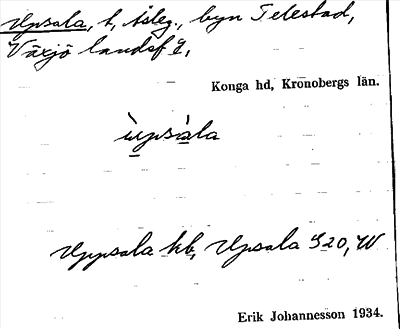 Upsala, t, åsleg., byn Telestad,
Växjö landsf g,
Konga hd, Kronobergs län.
ùpsàla
Uppsala kb, Upsala S20, W
Erik Johannesson 1934.